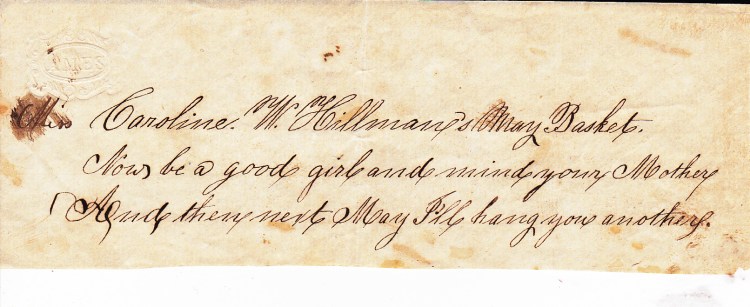 PARIS
Miss Caroline. W. Hillman's May Basket.
Now be a good girl and mind your Mother
And then next May I'll hang you another.